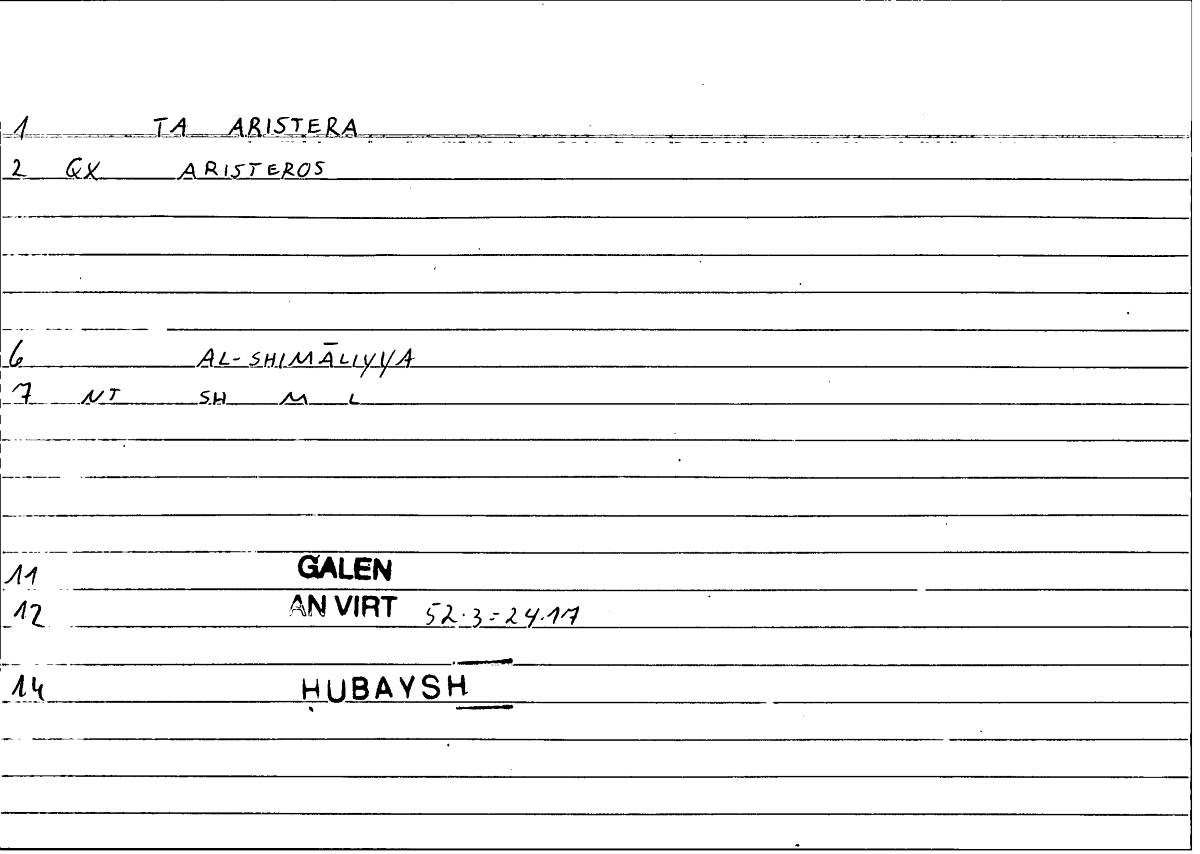 1 TA ARISTERA
2 QX ARISTEROS
6 AL-SHIMĀLIYYA
7 NT SH M L
11 GALEN
12 AN VIRT 52.3=24.17
14 HUBAYSH